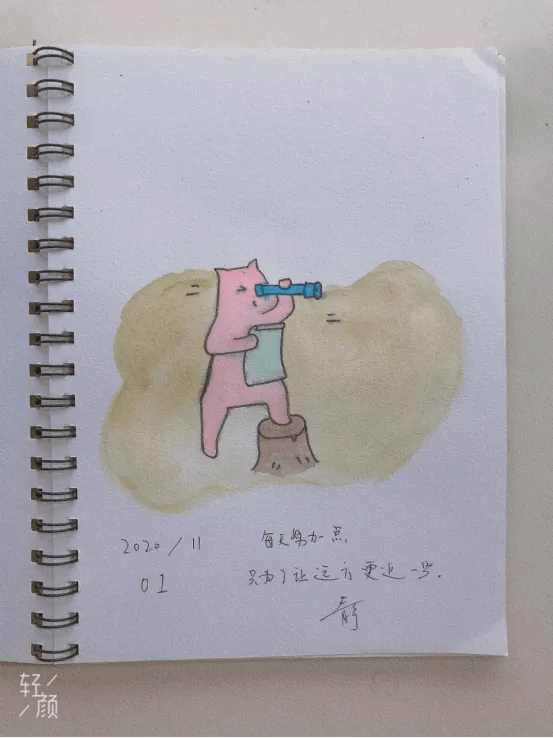 2020/11
01
每天努力一点,
只为了让远方更近一些.
静
轻颜